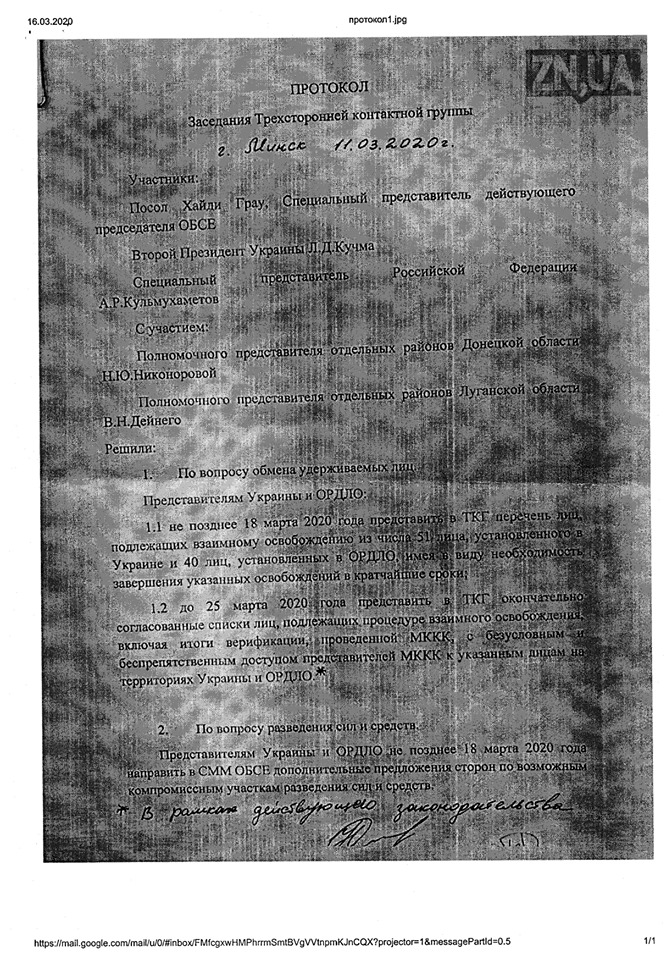 16.03.2020
протокол1.jpg
ZN,UA
ПРОТОКОЛ
Заседания Трехсторонней контактной группы
г. Минск 11.03.2020г.
Участники:
Посол Хайди Грау, Специальный представитель действующего
председателя ОБСЕ
Второй Президент Украины Л.Д.Кучма
Специальный представитель Российской Федерации
А.Р.Кульмухаметов
С участием:
Полномочного представителя отдельных районов Донецкой области
Н.Ю.Никоноровой
Полномочного представителя отдельных районов Луганской области
В.Н.Дейнего
Решили:
1. По вопросу обмена удерживаемых лиц
Представителям Украины и ОРДЛО:
1.1 не позднее 18 марта 2020 года представить в ТКГ перечень лиц,
подлежащих взаимному освобождению из числа 51 лица, установленного в
Украине и 40 лиц, установленных в ОРДЛО, имея в виду необходимость
завершения указанных освобождений в кратчайшие сроки;
1.2 до 25 марта 2020 года представить в ТКГ окончательно
согласованные списки лиц, подлежащих процедуре взаимного освобождения,
включая итоги верификации, проведенной МККК, с безусловным и
беспрепятственным доступом представителей МККК к указанным лицам на
территориях Украины и ОРДЛО.*
2. По вопросу разведения сил и средств.
Представителям Украины и ОРДЛО не позднее 18 марта 2020 года
направить в СММ ОБСЕ дополнительные предложения сторон по возможным
компромиссным участкам разведения сил и средств.
* В рамках действующего законодательства
https://mail.google.com/mail/u/0/#inbox/FMfcgxwHMPhrrmSmtBVgVVtnpmKJnCQX?projector=1&messagePartId=0.5
1/1